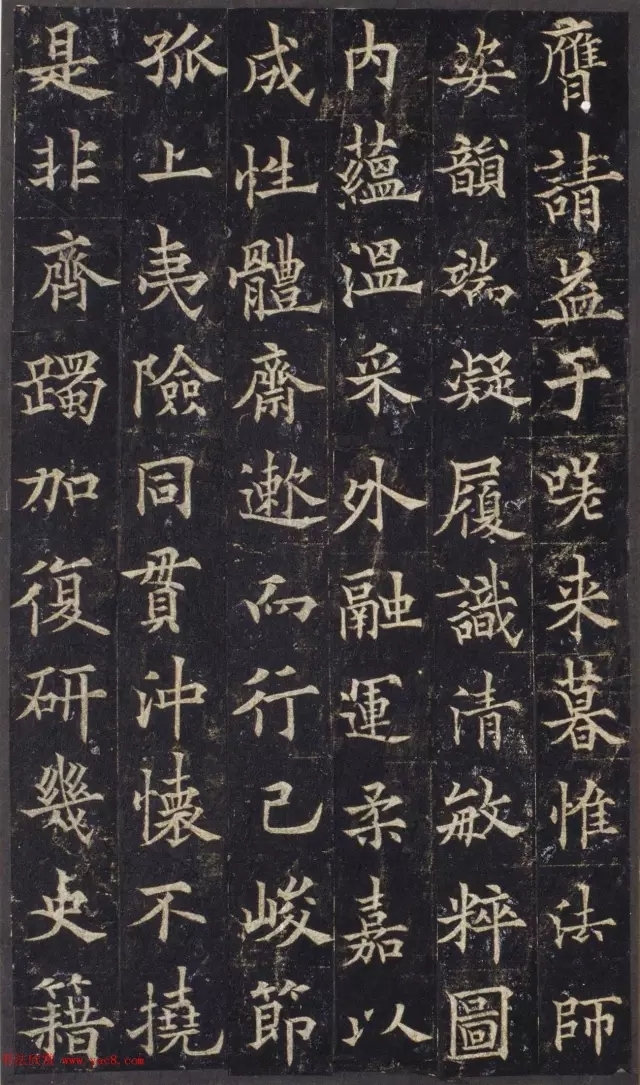 膺請益于嗟来暮惟法師
姿韻端凝履識清敏粹圖
内蘊温采外融運柔嘉以
成性體齋遬而行己峻節
孤上夷險同貫沖懷不撓
是非齊躅加復研幾史籍
www.yac8.com